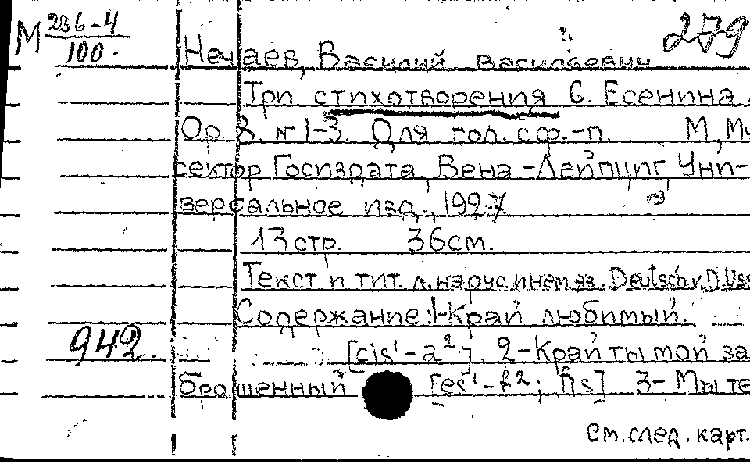 М 286-4/100.
279
Нечаев, Василий Васильевич
Три стихотворения С. Есенина.
Ор. 8, №1-3. Для гол. с ф.-п. М, Му
сектор Госиздата, Вена-Лейпциг, Уни-
версальное изд., 1927
13 стр. 36 см.
Текст и тит. л. на рус. и нем. яз. Deutsch v. D. Uss
Содержание: 1-Край любимый.
942. [cis¹-a²]. 2-Край ты мой за
брошенный [es¹-f²; fis] 3-Мы те
См. след. карт.